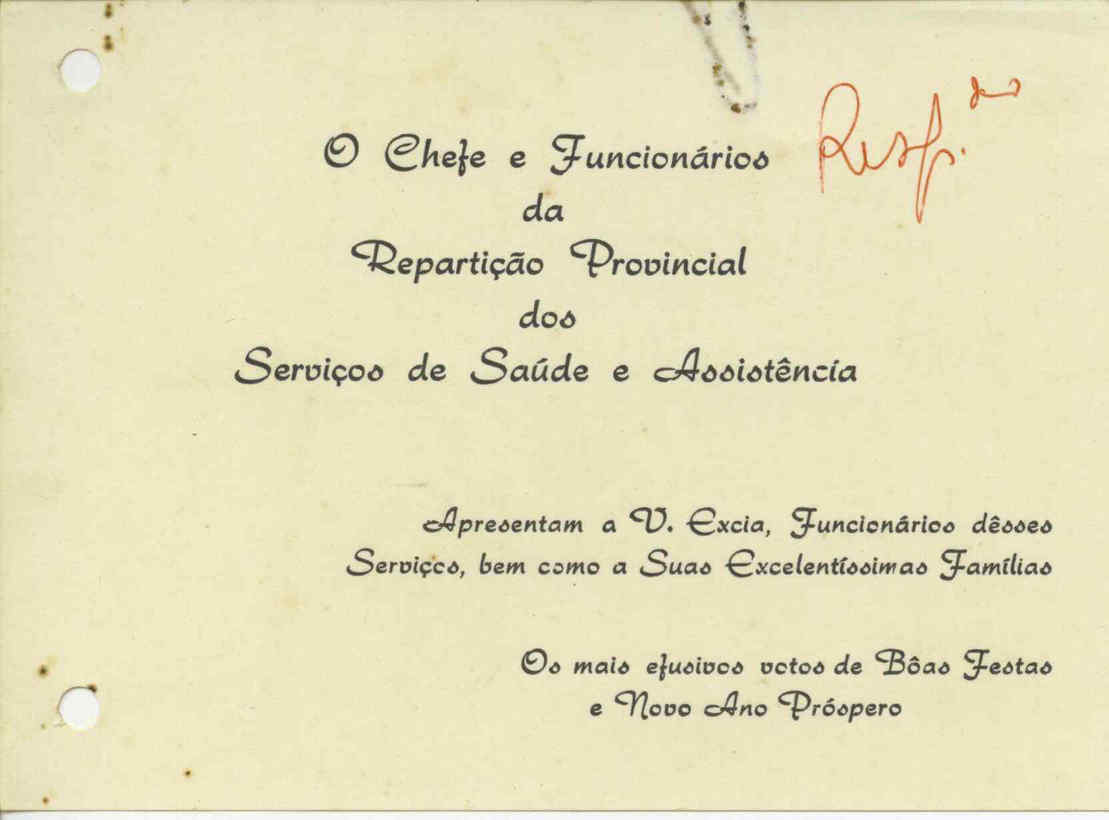 O Chefe e Funcionários
da
Repartição Provincial
dos
Serviços de Saúde e Assistência
Resp.
Apresentam a V. Excia, Funcionários dêsses
Serviços, bem como a Suas Excelentíssimas Famílias
Os mais efusivos votos de Bôas Festas
e Novo Ano Próspero